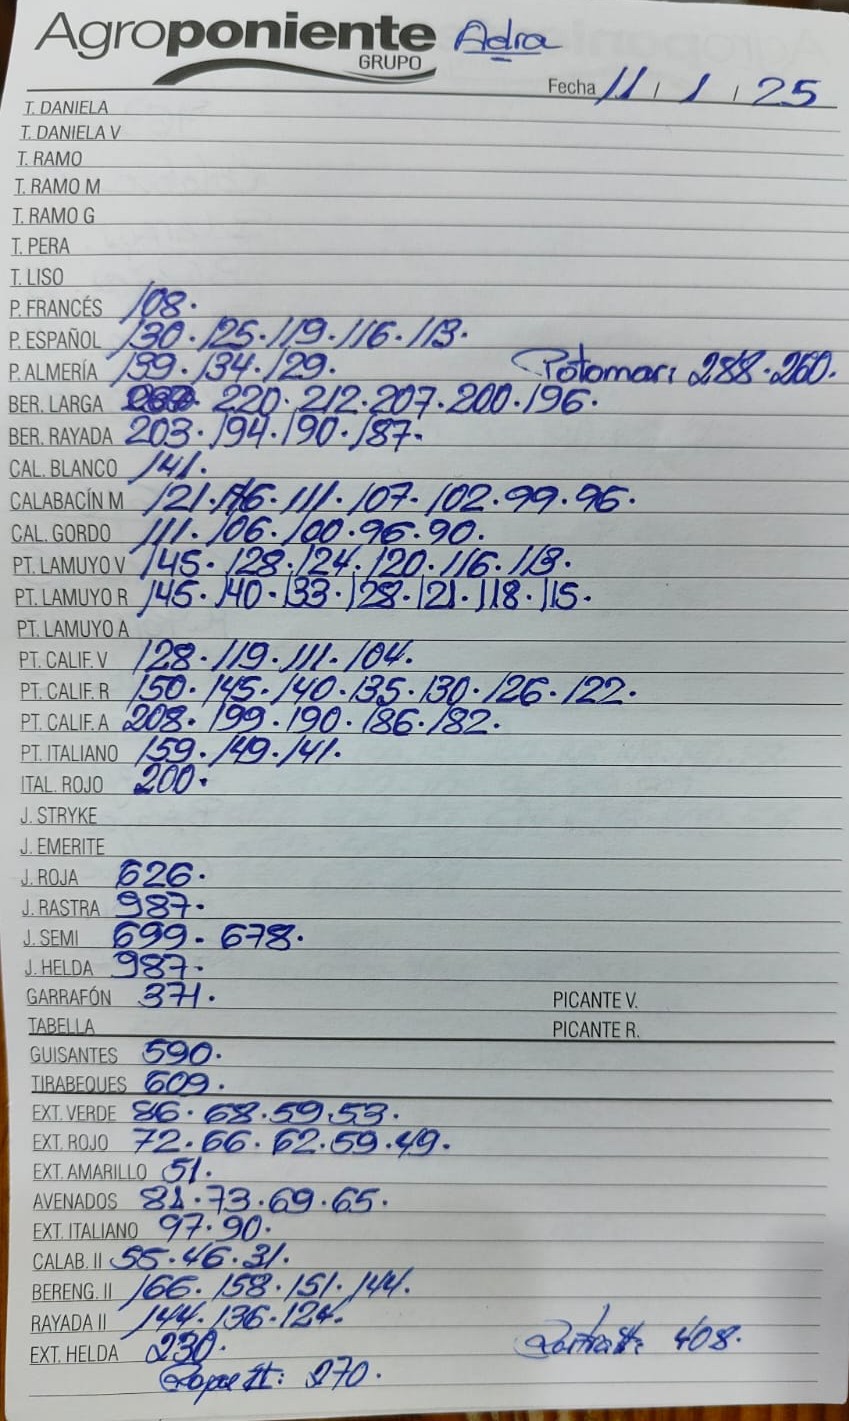 Agroponiente Adra
GRUPO
Fecha 11 / 1 / 25
T. DANIELA
T. DANIELA V
T. RAMO
T. RAMO M
T. RAMO G
T. PERA
T. LISO
P. FRANCÉS 108.
P. ESPAÑOL 130. 125. 119. 116. 113.
P. ALMERÍA 139. 134. 129. Potomar: 288. 260.
BER. LARGA 220. 212. 207. 200. 196.
BER. RAYADA 203. 194. 190. 187.
CAL. BLANCO 141.
CALABACÍN M 121. 116. 111. 107. 102. 99. 96.
CAL. GORDO 111. 106. 100. 96. 90.
PT. LAMUYO V 145. 128. 124. 120. 116. 113.
PT. LAMUYO R 145. 140. 133. 128. 121. 118. 115.
PT. LAMUYO A
PT. CALIF. V 128. 119. 111. 104.
PT. CALIF. R 150. 145. 140. 135. 130. 126. 122.
PT. CALIF. A 208. 199. 190. 186. 182.
PT. ITALIANO 159. 149. 141.
ITAL. ROJO 200.
J. STRYKE
J. EMERITE
J. ROJA 626.
J. RASTRA 987.
J. SEMI 699. 678.
J. HELDA 987.
GARRAFÓN 371. PICANTE V.
TABELLA PICANTE R.
GUISANTES 590.
TIRABEQUES 609.
EXT. VERDE 86. 68. 59. 53.
EXT. ROJO 72. 66. 62. 59. 49.
EXT. AMARILLO 51.
AVENADOS 81. 73. 69. 65.
EXT. ITALIANO 97. 90.
CALAB. II 55. 46. 31.
BERENG. II 166. 158. 151. 144.
RAYADA II 144. 136. 124.
EXT. HELDA 230. 408.
II: 270.